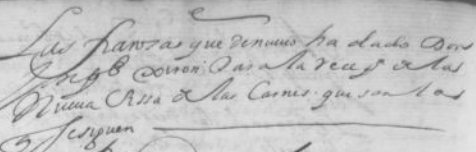 Las fianzas que de nuevo ha dado Don
Joseph para la de las
Nueva Casa de las Carnes que son las
q se siguen